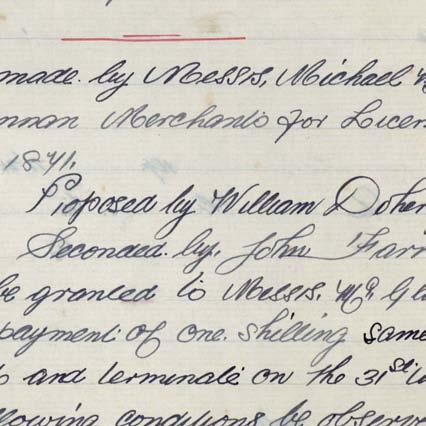 made by Messrs. Michael
nnan Merchants for Licen
1871.
Proposed by William Doher
Seconded by, John Farr
be granted to Messrs. Mc. Gl
payment of one shilling same
and terminate on the 31st
llowing conditions be observe